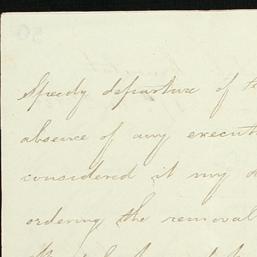 speedy departure of
absence of any
considered it my
ordering the removal